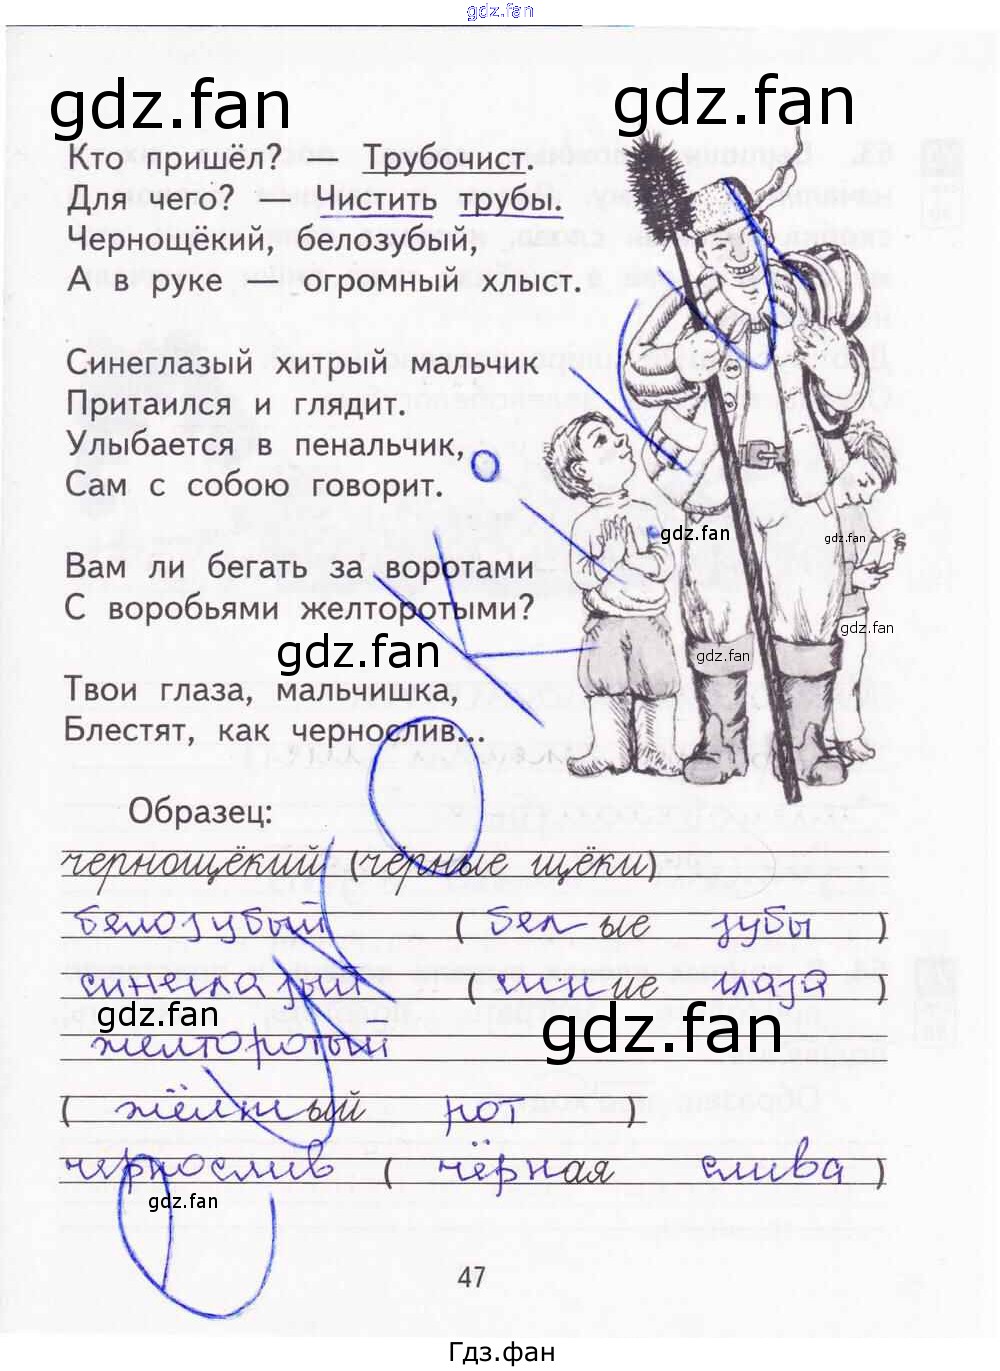 gdz.fan
gdz.fan
gdz.fan
Кто пришёл? — Трубочист.
Для чего? — Чистить трубы.
Чернощёкий, белозубый,
А в руке — огромный хлыст.
Синеглазый хитрый мальчик
Притаился и глядит.
Улыбается в пенальчик,
Сам с собою говорит.
gdz.fan
gdz.fan
Вам ли бегать за воротами
С воробьями желторотыми?
gdz.fan
gdz.fan
gdz.fan
Твои глаза, мальчишка,
Блестят, как чернослив...
Образец:
чернощёкий (чёрные щёки)
белозубый ( белые зубы )
синеглазый ( синие глаза )
gdz.fan
gdz.fan
желторотый
( жёлтый рот )
чернослив ( чёрная слива )
gdz.fan
47
Гдз.фан